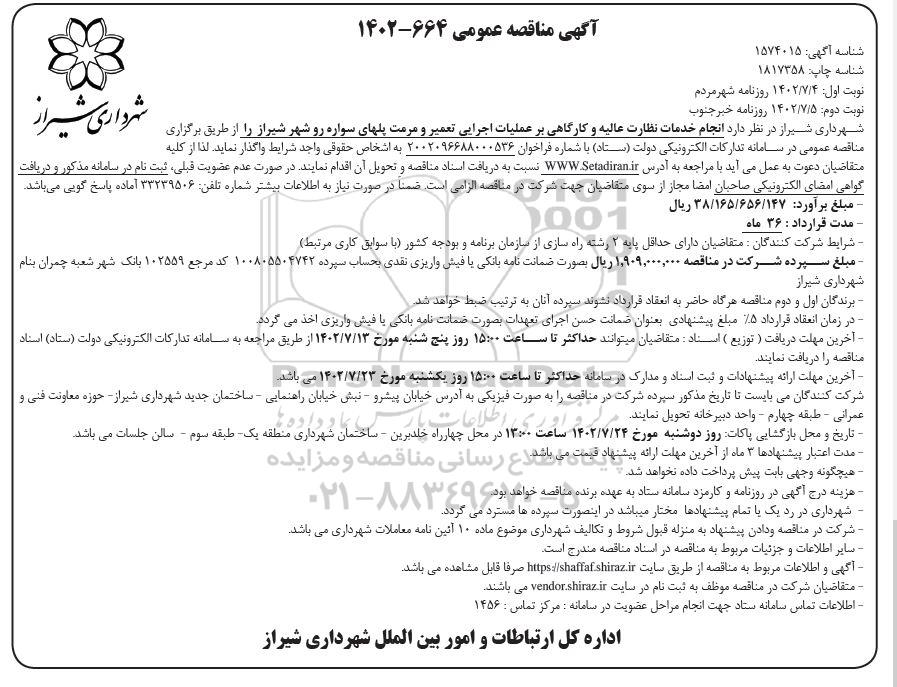 آگهی مناقصه عمومی ۶۶۴-۱۴۰۲
شهرداری شیراز
شناسه آگهی: ۱۵۷۴۰۱۵
شناسه چاپ: ۱۸۱۷۳۵۸
نوبت اول: ۱۴۰۲/۷/۴ روزنامه شهرمردم
نوبت دوم: ۱۴۰۲/۷/۵ روزنامه خبرجنوب
شهرداری شیراز در نظر دارد انجام خدمات نظارت عالیه و کارگاهی بر عملیات اجرایی تعمیر و مرمت پلهای سواره رو شهر شیراز را از طریق برگزاری
مناقصه عمومی در سامانه تدارکات الکترونیکی دولت (ستاد) با شماره فراخوان ۲۰۰۲۰۹۶۶۸۸۰۰۰۵۳۶ به اشخاص حقوقی واجد شرایط واگذار نماید. لذا از کلیه
متقاضیان دعوت به عمل می آید با مراجعه به آدرس WWW.Setadiran.ir نسبت به دریافت اسناد مناقصه و تحویل آن اقدام نمایند. در صورت عدم عضویت قبلی، ثبت نام در سامانه مذکور و دریافت
گواهی امضای الکترونیکی صاحبان امضا مجاز از سوی متقاضیان جهت شرکت در مناقصه الزامی است. ضمناً در صورت نیاز به اطلاعات بیشتر شماره تلفن: ۳۳۲۳۹۵۰۶ آماده پاسخ گویی می‌باشد.
- مبلغ برآورد: ۳۸/۱۶۵/۶۵۶/۱۴۷ ریال
- مدت قرارداد : ۳۶ ماه
- شرایط شرکت کنندگان : متقاضیان دارای حداقل پایه ۲ رشته راه سازی از سازمان برنامه و بودجه کشور (با سوابق کاری مرتبط)
- مبلغ سپرده شرکت در مناقصه ۱,۹۰۹,۰۰۰,۰۰۰ ریال بصورت ضمانت نامه بانکی یا فیش واریزی نقدی بحساب سپرده ۱۰۰۸۰۵۵۰۴۷۴۲ کد مرجع ۱۰۲۵۵۹ بانک شهر شعبه چمران بنام
شهرداری شیراز
- برندگان اول و دوم مناقصه هرگاه حاضر به انعقاد قرارداد نشوند سپرده آنان به ترتیب ضبط خواهد شد.
- در زمان انعقاد قرارداد ۵٪ مبلغ پیشنهادی بعنوان ضمانت حسن اجرای تعهدات بصورت ضمانت نامه بانکی یا فیش واریزی اخذ می گردد.
- آخرین مهلت دریافت ( توزیع ) اسناد : متقاضیان میتوانند حداکثر تا ساعت ۱۵:۰۰ روز پنج شنبه مورخ ۱۴۰۲/۷/۱۳ از طریق مراجعه به سامانه تدارکات الکترونیکی دولت (ستاد) اسناد
مناقصه را دریافت نمایند.
- آخرین مهلت ارائه پیشنهادات و ثبت اسناد و مدارک در سامانه حداکثر تا ساعت ۱۵:۰۰ روز یکشنبه مورخ ۱۴۰۲/۷/۲۳ می باشد.
شرکت کنندگان می بایست تا تاریخ مذکور سپرده شرکت در مناقصه را به صورت فیزیکی به آدرس خیابان پیشرو - نبش خیابان راهنمایی - ساختمان جدید شهرداری شیراز- حوزه معاونت فنی و
عمرانی - طبقه چهارم - واحد دبیرخانه تحویل نمایند.
- تاریخ و محل بازگشایی پاکات: روز دوشنبه مورخ ۱۴۰۲/۷/۲۴ ساعت ۱۳:۰۰ در محل چهارراه خلدبرین - ساختمان شهرداری منطقه یک- طبقه سوم - سالن جلسات می باشد.
- مدت اعتبار پیشنهادها ۳ ماه از آخرین مهلت ارائه پیشنهاد قیمت می باشد.
- هیچگونه وجهی بابت پیش پرداخت داده نخواهد شد.
- هزینه درج آگهی در روزنامه و کارمزد سامانه ستاد به عهده برنده مناقصه خواهد بود.
- شهرداری در رد یک یا تمام پیشنهادها مختار میباشد در اینصورت سپرده ها مسترد می گردد.
- شرکت در مناقصه ودادن پیشنهاد به منزله قبول شروط و تکالیف شهرداری موضوع ماده ۱۰ آئین نامه معاملات شهرداری می باشد.
- سایر اطلاعات و جزئیات مربوط به مناقصه در اسناد مناقصه مندرج است.
- آگهی و اطلاعات مربوط به مناقصه از طریق سایت https://shaffaf.shiraz.ir صرفا قابل مشاهده می باشد.
- متقاضیان شرکت در مناقصه موظف به ثبت نام در سایت vendor.shiraz.ir می باشند.
- اطلاعات تماس سامانه ستاد جهت انجام مراحل عضویت در سامانه : مرکز تماس : ۱۴۵۶
اداره کل ارتباطات و امور بین الملل شهرداری شیراز
پایگاه اطلاع رسانی مناقصه و مزایده
۰۲۱-۸۸۳۴۹۶۷۰-۵